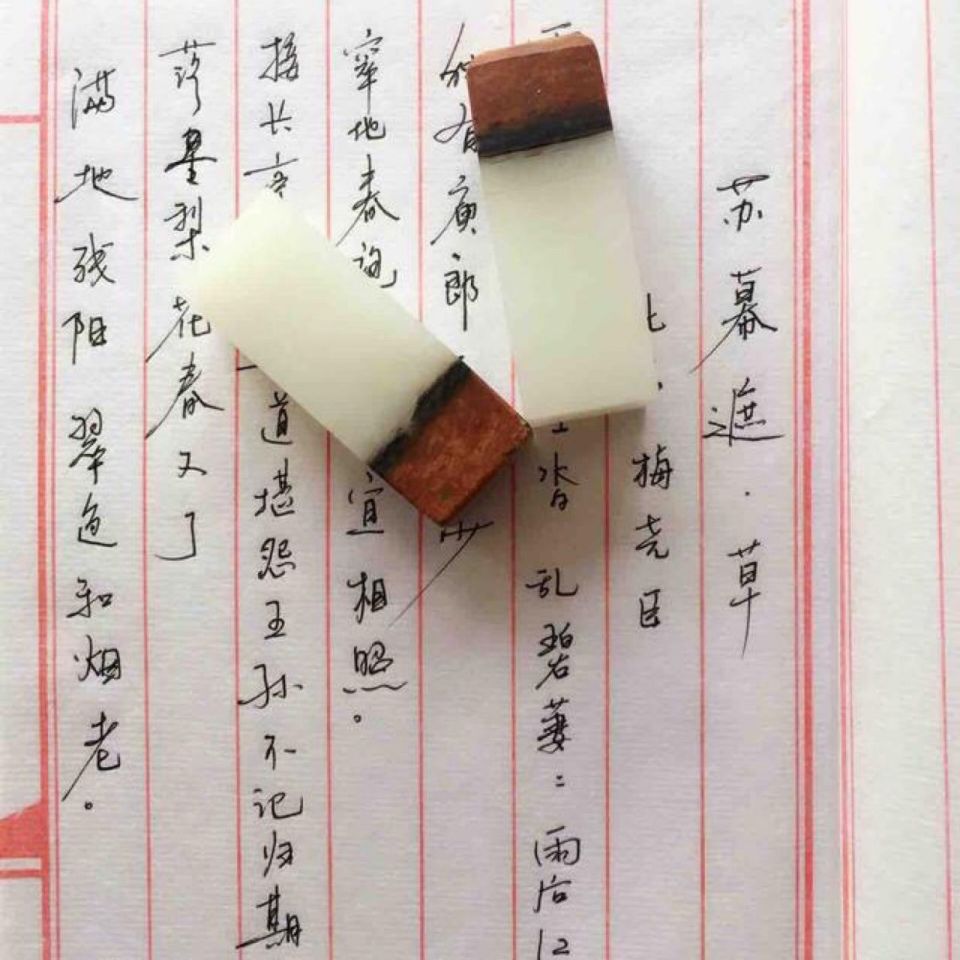 苏幕遮·草
·梅尧臣
杳 乱碧萋：雨后江
有庾郎 少
窣地春袍 宜相照。
接长亭 道堪怨王孙不记归期
落尽梨花春又了
满地残阳 翠色和烟老。